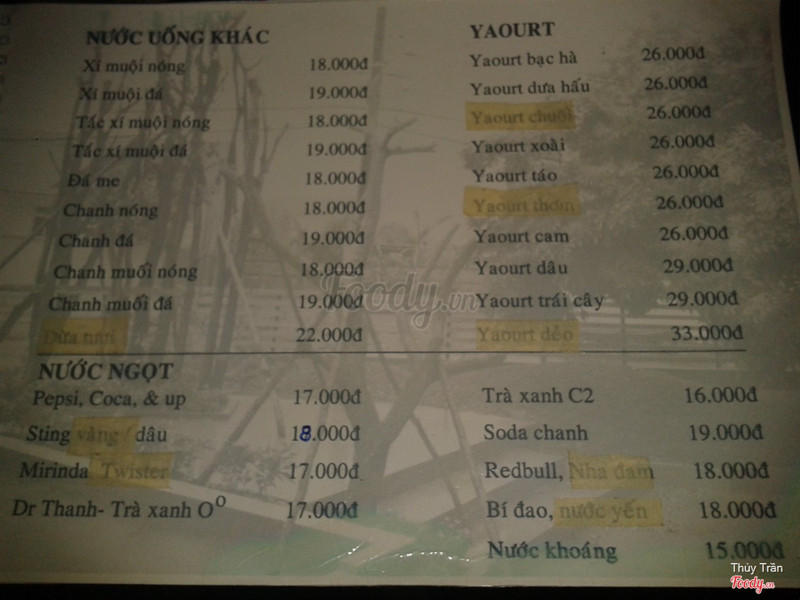 NƯỚC UỐNG KHÁC
Xí muội nóng 18.000đ
Xí muội đá 19.000đ
Tắc xí muội nóng 18.000đ
Tắc xí muội đá 19.000đ
Đá me 18.000đ
Chanh nóng 18.000đ
Chanh đá 19.000đ
Chanh muối nóng 18.000đ
Chanh muối đá 19.000đ
Dừa tươi 22.000đ
YAOURT
Yaourt bạc hà 26.000đ
Yaourt dưa hấu 26.000đ
Yaourt chuối 26.000đ
Yaourt xoài 26.000đ
Yaourt táo 26.000đ
Yaourt thơm 26.000đ
Yaourt cam 26.000đ
Yaourt dâu 29.000đ
Yaourt trái cây 29.000đ
Yaourt dẻo 33.000đ
NƯỚC NGỌT
Pepsi, Coca, & up 17.000đ
Sting vàng / dâu 18.000đ
Mirinda Twister 17.000đ
Dr Thanh- Trà xanh Oº 17.000đ
Trà xanh C2 16.000đ
Soda chanh 19.000đ
Redbull, Nha đam 18.000đ
Bí đao, nước yến 18.000đ
Nước khoáng 15.000đ
Foody.vn
Thúy Trần
Foody.vn